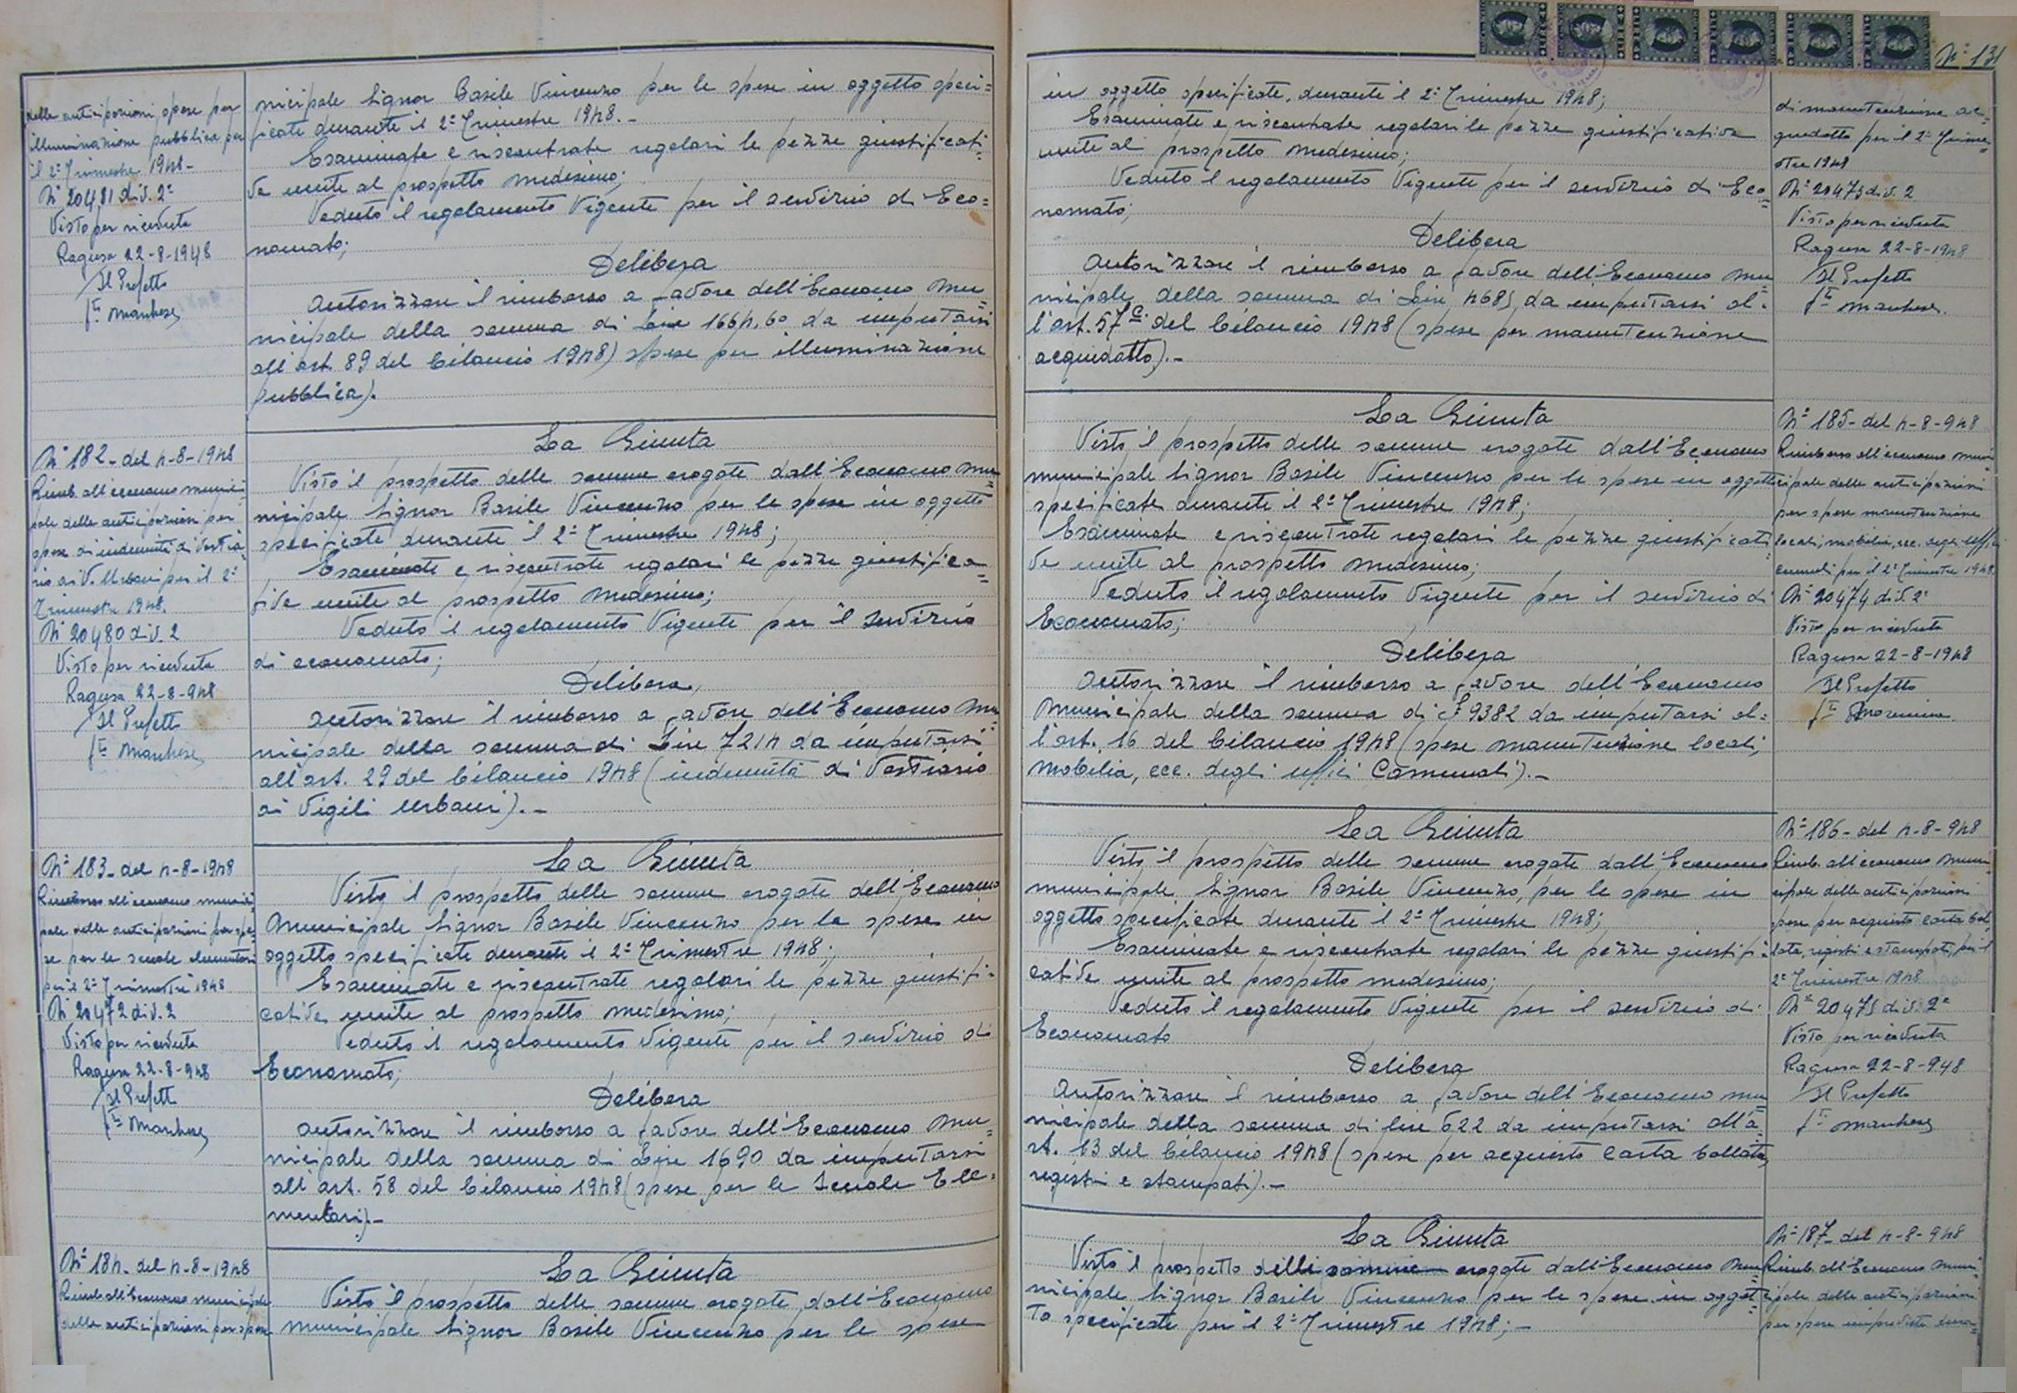 delle anticipazioni spese per
illuminazione pubblica per
il 2° Trimestre 1948-
N° 20481 div. 2ª
Visto per ricevuta
Ragusa 22-8-1948
Il Prefetto
fto Marchese
nicipale Signor Basile Vincenzo per le spese in oggetto speci=
ficate durante il 2° Trimestre 1948.-
Esaminate e riscontrate regolari le pezze giustificati=
ve unite al prospetto medesimo;
Veduto il regolamento Vigente per il servizio di Eco=
nomato;
Delibera
Autorizzare il rimborso a favore dell'Economo Mu=
nicipale della somma di Lire 1664,60 da imputarsi
all'art. 89 del bilancio 1948) spese per illuminazione
pubblica).
N° 182- del 4-8-1948
Rimb. all'economo munici
pale delle anticipazioni per
spese di indennità di vestia
rio ai V. Urbani per il 2°
Trimestre 1948.
N° 20480 div. 2
Visto per ricevuta
Ragusa 22-8-948
Il Prefetto
fto Marchese
La Giunta
Visto il prospetto delle somme erogate dall'Economo Mu=
nicipale Signor Basile Vincenzo per le spese in oggetto
specificate durante il 2° Trimestre 1948;
Esaminate e riscontrate regolari le pezze giustifica=
tive unite al prospetto medesimo;
Veduto il regolamento Vigente per il servizio
di economato;
Delibera
Autorizzare il rimborso a favore dell'Economo Mu
nicipale della somma di Lire 7214 da imputarsi
all'art. 29 del bilancio 1948 (indennità di Vestiario
ai Vigili Urbani).-
N° 183- del 4-8-1948
Rimborso all'economo munici
pale delle anticipazioni per spe=
se per le scuole elementari
per il 2° Trimestre 1948
N° 20472 div. 2
Visto per ricevuta
Ragusa 22-8-948
Il Prefetto
fto Marchese
La Giunta
Visto il prospetto delle somme erogate dell'Economo
Municipale Signor Basile Vincenzo per le spese in
oggetto specificate durante il 2° Trimestre 1948;
Esaminate e riscontrate regolari le pezze giustifi-
cative unite al prospetto medesimo;
Veduto il regolamento Vigente per il servizio di
Economato;
Delibera
Autorizzare il rimborso a favore dell'Economo Mu=
nicipale della somma di Lire 1690 da imputarsi
all'art. 58 del bilancio 1948 (spese per le Scuole Ele=
mentari).-
N° 184- del 4-8-1948
Rimb. all'Economo municipale
delle anticipazioni per spese
La Giunta
Visto il prospetto delle somme erogate dall'Economo
Municipale Signor Basile Vincenzo per le spese
N° 131
in oggetto specificate, durante il 2° Trimestre 1948;
Esaminate e riscontrate regolari le pezze giustificative
unite al prospetto medesimo;
Veduto il regolamento Vigente per il servizio di Eco=
nomato;
Delibera
Autorizzare il rimborso a favore dell'Economo Mu
nicipale della somma di Lire 4685 da imputarsi al=
l'art. 57 c. del bilancio 1948 (spese per manutenzione
acquedotto).-
di manutenzione ac=
quedotto per il 2° Trime=
stre 1948
N° 20473 div. 2
Visto per ricevuta
Ragusa 22-8-1948
Il Prefetto
fto Marchese.
La Giunta
Visto il prospetto delle somme erogate dall'Economo
municipale Signor Basile Vincenzo per le spese in oggetto
specificate durante il 2° Trimestre 1948;
Esaminate e riscontrate regolari le pezze giustificati
ve unite al prospetto medesimo;
Veduto il regolamento Vigente per il servizio di
Economato;
Delibera
Autorizzare il rimborso a favore dell'Economo
Municipale della somma di £ 9382 da imputarsi al=
l'art. 16 del bilancio 1948 (spese manutenzione locali,
mobilia, ecc. degli uffici Comunali).-
N° 185- del 4-8-948
Rimborso all'economo muni
cipale delle anticipazioni
per spese manutenzione
locali, mobilia, ecc. degli uffici
comunali per il 2° Trimestre 1948
N° 20474 div. 2ª
Visto per ricevuta
Ragusa 22-8-1948
Il Prefetto
fto
La Giunta
Visto il prospetto delle somme erogate dall'Economo
municipale Signor Basile Vincenzo, per le spese in
oggetto specificate durante il 2° Trimestre 1948;
Esaminate e riscontrate regolari le pezze giustifi
cative unite al prospetto medesimo;
Veduto il regolamento Vigente per il servizio di
Economato
Delibera
Autorizzare il rimborso a favore dell'Economo mu
nicipale della somma di lire 622 da imputarsi all'a=
rt. 13 del bilancio 1948 (spese per acquisto carta bollata,
registri e stampati).-
N° 186- del 4-8-948
Rimb. all'economo muni
cipale delle anticipazioni
spese per acquisto carta bol
lata, registri e stampati per il
2° Trimestre 1948
N° 20475 div. 2ª
Visto per ricevuta
Ragusa 22-8-948
Il Prefetto
fto Marchese
La Giunta
Visto il prospetto delle somme erogate dall'Economo Mu
nicipale Signor Basile Vincenzo per le spese in ogget=
to specificate per il 2° Trimestre 1948;-
N° 187- del 4-8-948
Rimb. all'Economo Muni
cipale delle anticipazioni
per spese impreviste dura=